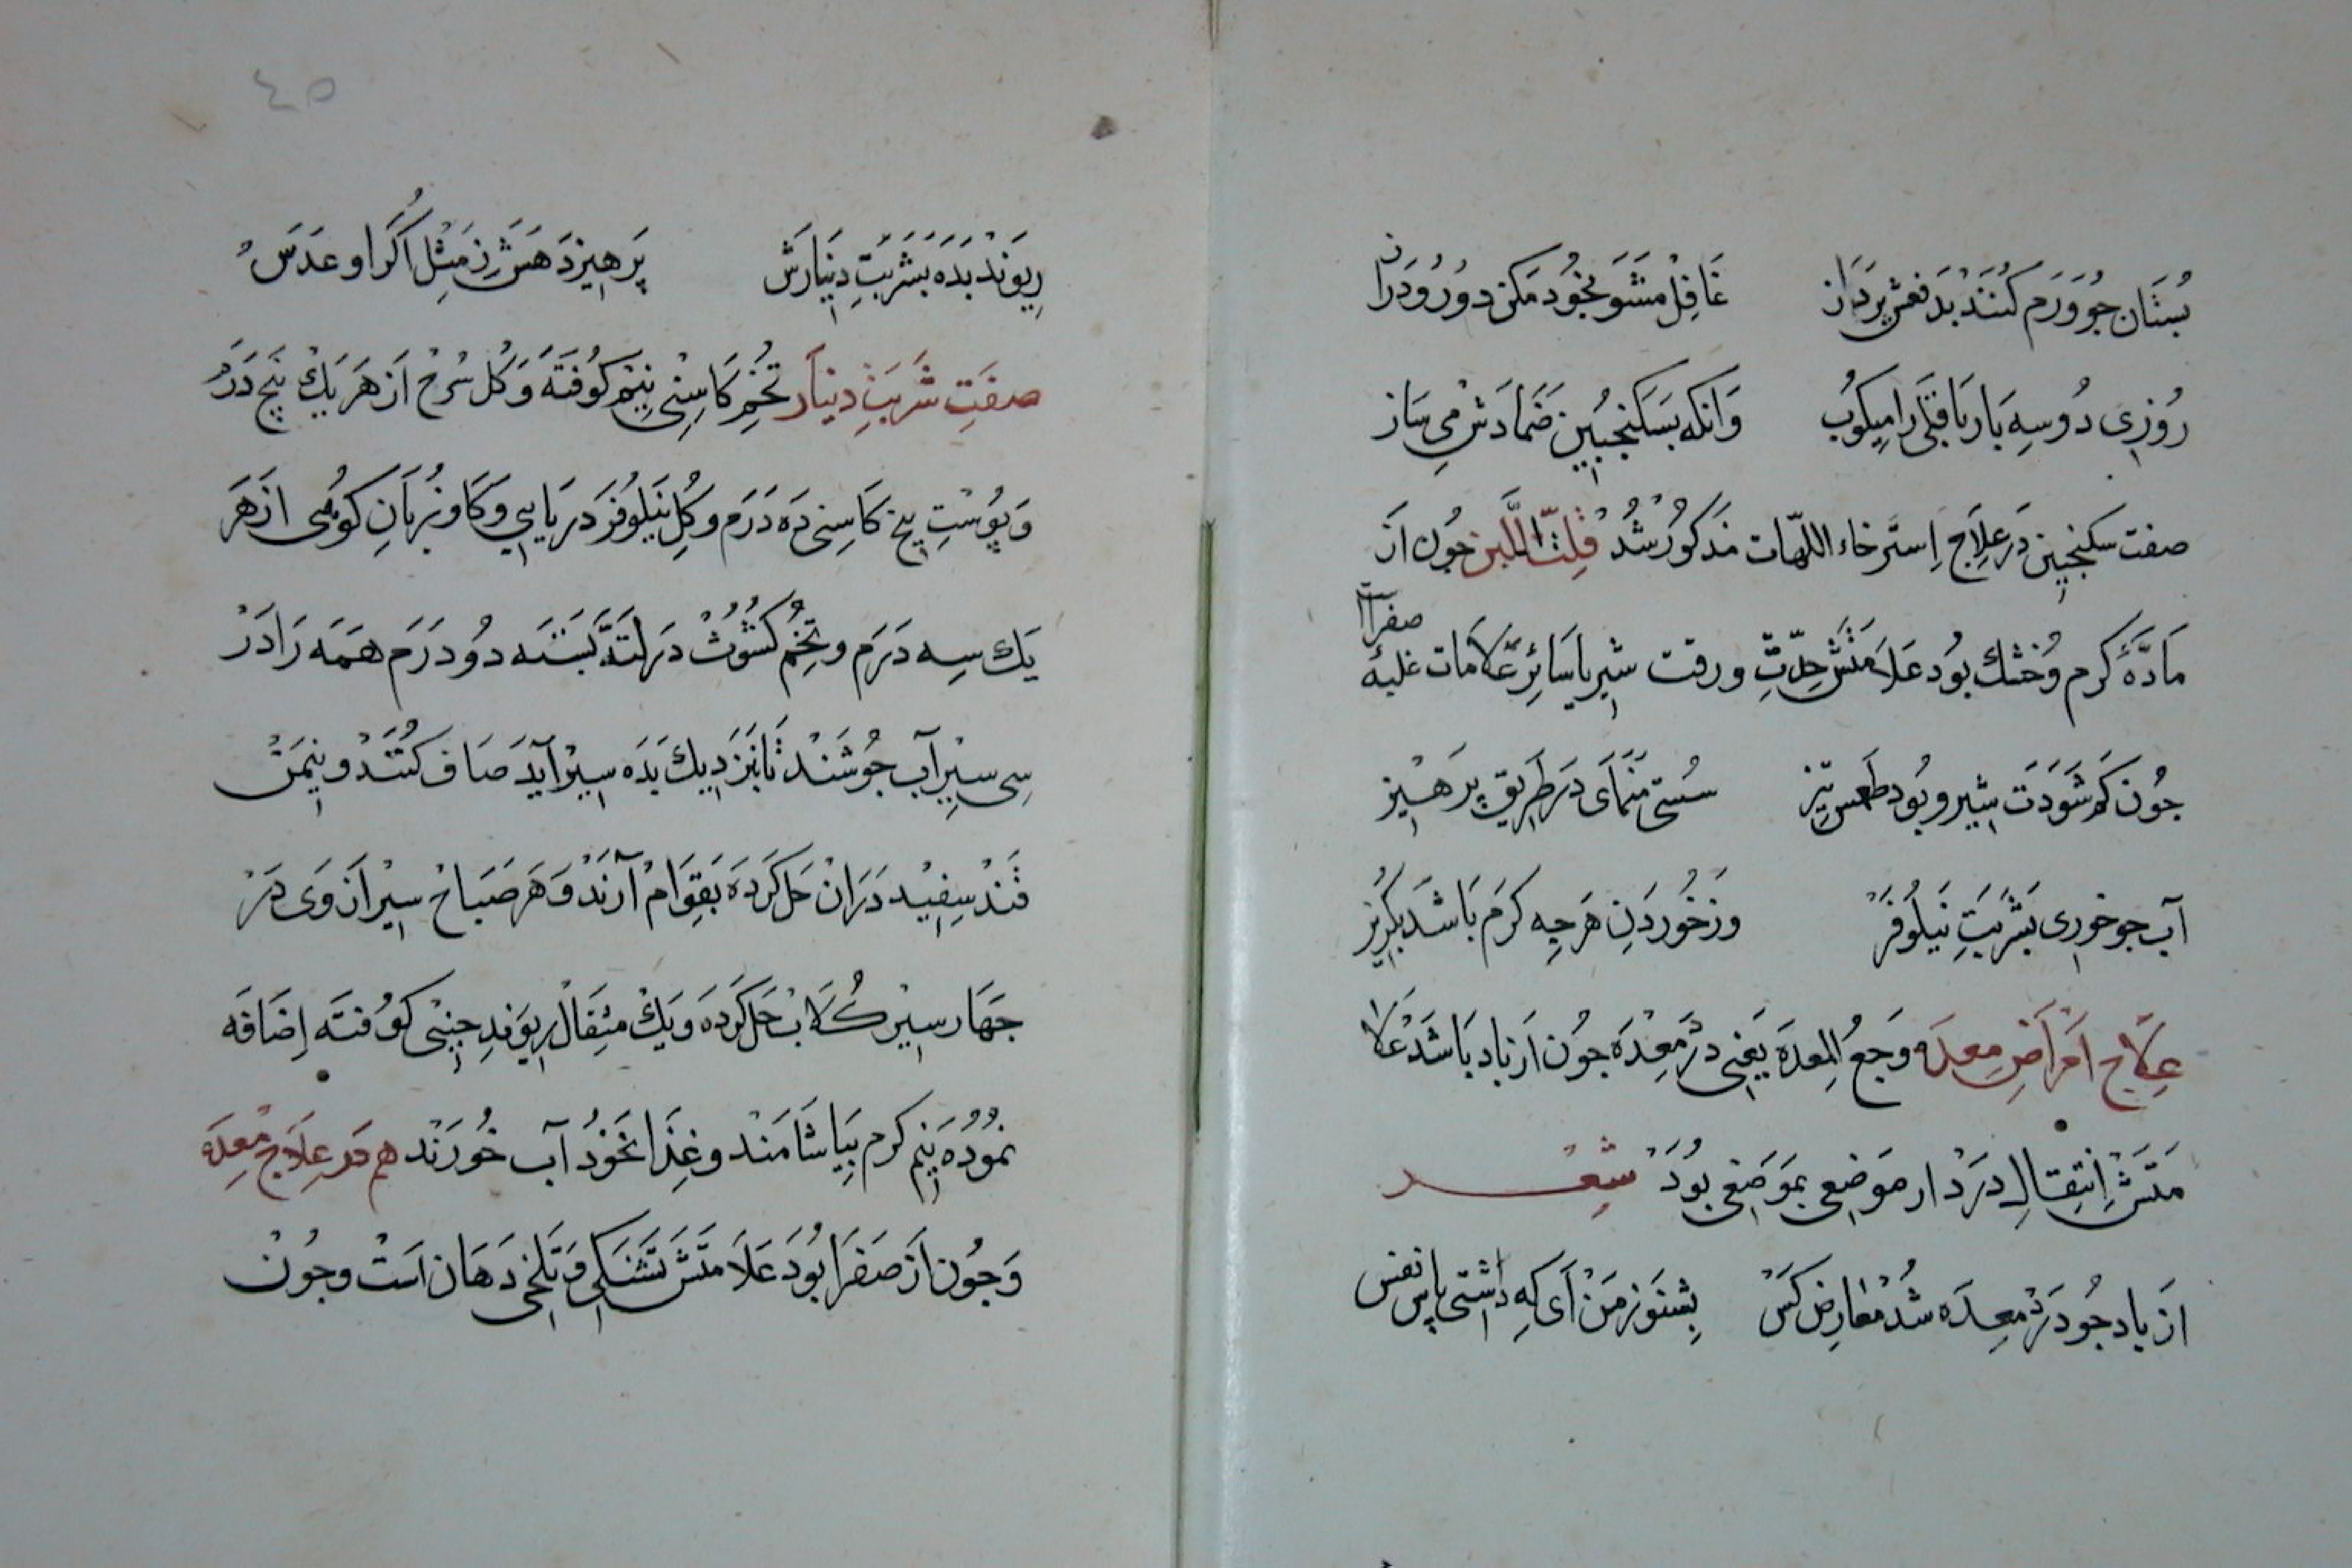 بُستَان جُو وَرَم كُنَند بَدَفعش پَردَاز غَافِل مَشَو بخُود مَكن دور و دَراز
رُوزِى دُوسِه بَار بَاقِلَى را ميكوُب وَانكه بَسكنجبين ضَمادَش مى سَاز
صفت سكنجبين دَر عِلَاج اِستَرخاء اللهات مَذكوُر شُد قِلتُ اللَّبن جُون اَز
مَادَّهٔ كَرم وُ خُشك بُود عَلَامَتَش حِدّتِ و رقت شير با سَائِر عَلامَات غلبهٔ صفرا
جُون كم شَوَدَت شير و بُود طعمس تيز سُستى مَنماَى دَر طَرِيق پَرهيز
آب جو خورى بَشَربَتِ نيلُوفَر وز خُوردَنِ هَرچِه كَرم بَاشَد بگريز
عِلَاج اَمرَاضِ مِعدَه وَجَعُ المِعدَه يَعنى دَرد مِعدَه جُون از باد بَاشَد عَلا
مَتَش اِنتِقالِ دَرد از مَوضِعى بمَوضِعى بُودَ شِعر
اَز باد جُو دَرد مِعِدَه شُد مُعارِض كَس بِشنَو زمَن اَى كِه داشتى پاس نفس
رِيوَند بَدَه بشَربَتِ دينارَش پَرهيز دَهَش زِ مِثل اَكرا و عَدَس
صِفَتِ شَربَتِ دِينَار تُخمِ كَاسِنى نِيم كوُفتَه وَ كُل سُرخ اَز هَر يَك پَنج دَرَم
وَ پوُستِ بيخ كَاسِنى دَه دَرَم و كُلِ نيلُوفَر دَريَايى و كَاوزُبَانِ كوُهى از هَر
يَك سِه دَرَم و تُخمِ كُشُوث دَر لَتَّه بَستَه دوُ دَرَم هَمَه رَا دَر
سِى سيرِ آب جُوشَند تا بَنَزديك بَدَه سير آيَد صَاف كُنَند و نيمَن
قَند سِفيد دَرَان حَل كَردَه بَقِوَام آرَند وَ هَر صَبَاح سير اَز وَى دَر
جَهَار سير كُلَاب حَل كَردَه و يَك مِثقَال رِيوَندِ چينى كوُفتَه اِضَافَه
نمُودَه نيم كَرم بَياشَامَند و غِذَا نخُود آب خُورَند هم دَر عِلَاج مِعدَه
وَ جُون اَز صَفرَا بُودَ عَلَامَتَش تَشنَكى وَ تَلخى دَهَان اَست و جُون
٤٥